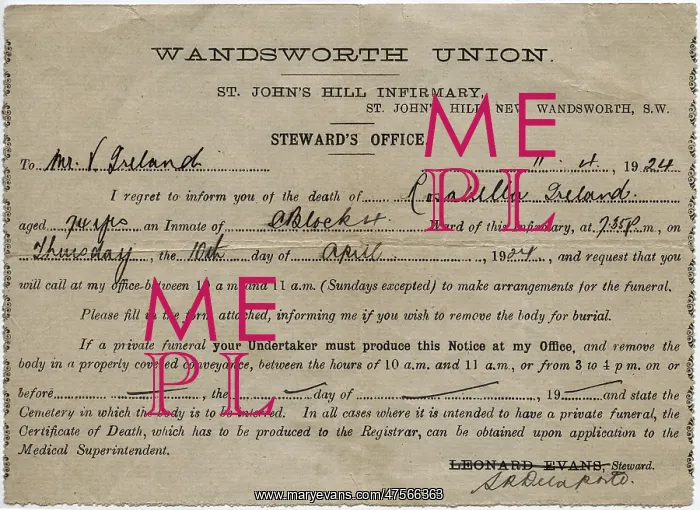 WANDSWORTH UNION.
ST. JOHN'S HILL INFIRMARY,
ST. JOHN'S HILL, NEW WANDSWORTH, S.W.
STEWARD'S OFFICE
11. 4, 1924
To Mr. V. Ireland
I regret to inform you of the death of Ireland.
aged 74 yrs an Inmate of Ward of this Infirmary, at 7.35 P m., on
Thursday, the 10th day of April, 1924, and request that you
will call at my office between 10 a.m. and 11 a.m. (Sundays excepted) to make arrangements for the funeral.
Please fill in the form attached, informing me if you wish to remove the body for burial.
If a private funeral your Undertaker must produce this Notice at my Office, and remove the
body in a properly covered conveyance, between the hours of 10 a.m. and 11 a.m., or from 3 to 4 p.m. on or
before, the day of, 19 and state the
Cemetery in which the body is to be interred. In all cases where it is intended to have a private funeral, the
Certificate of Death, which has to be produced to the Registrar, can be obtained upon application to the
Medical Superintendent.
LEONARD EVANS, Steward.
ME
PL
ME
PL
www.maryevans.com/47566363